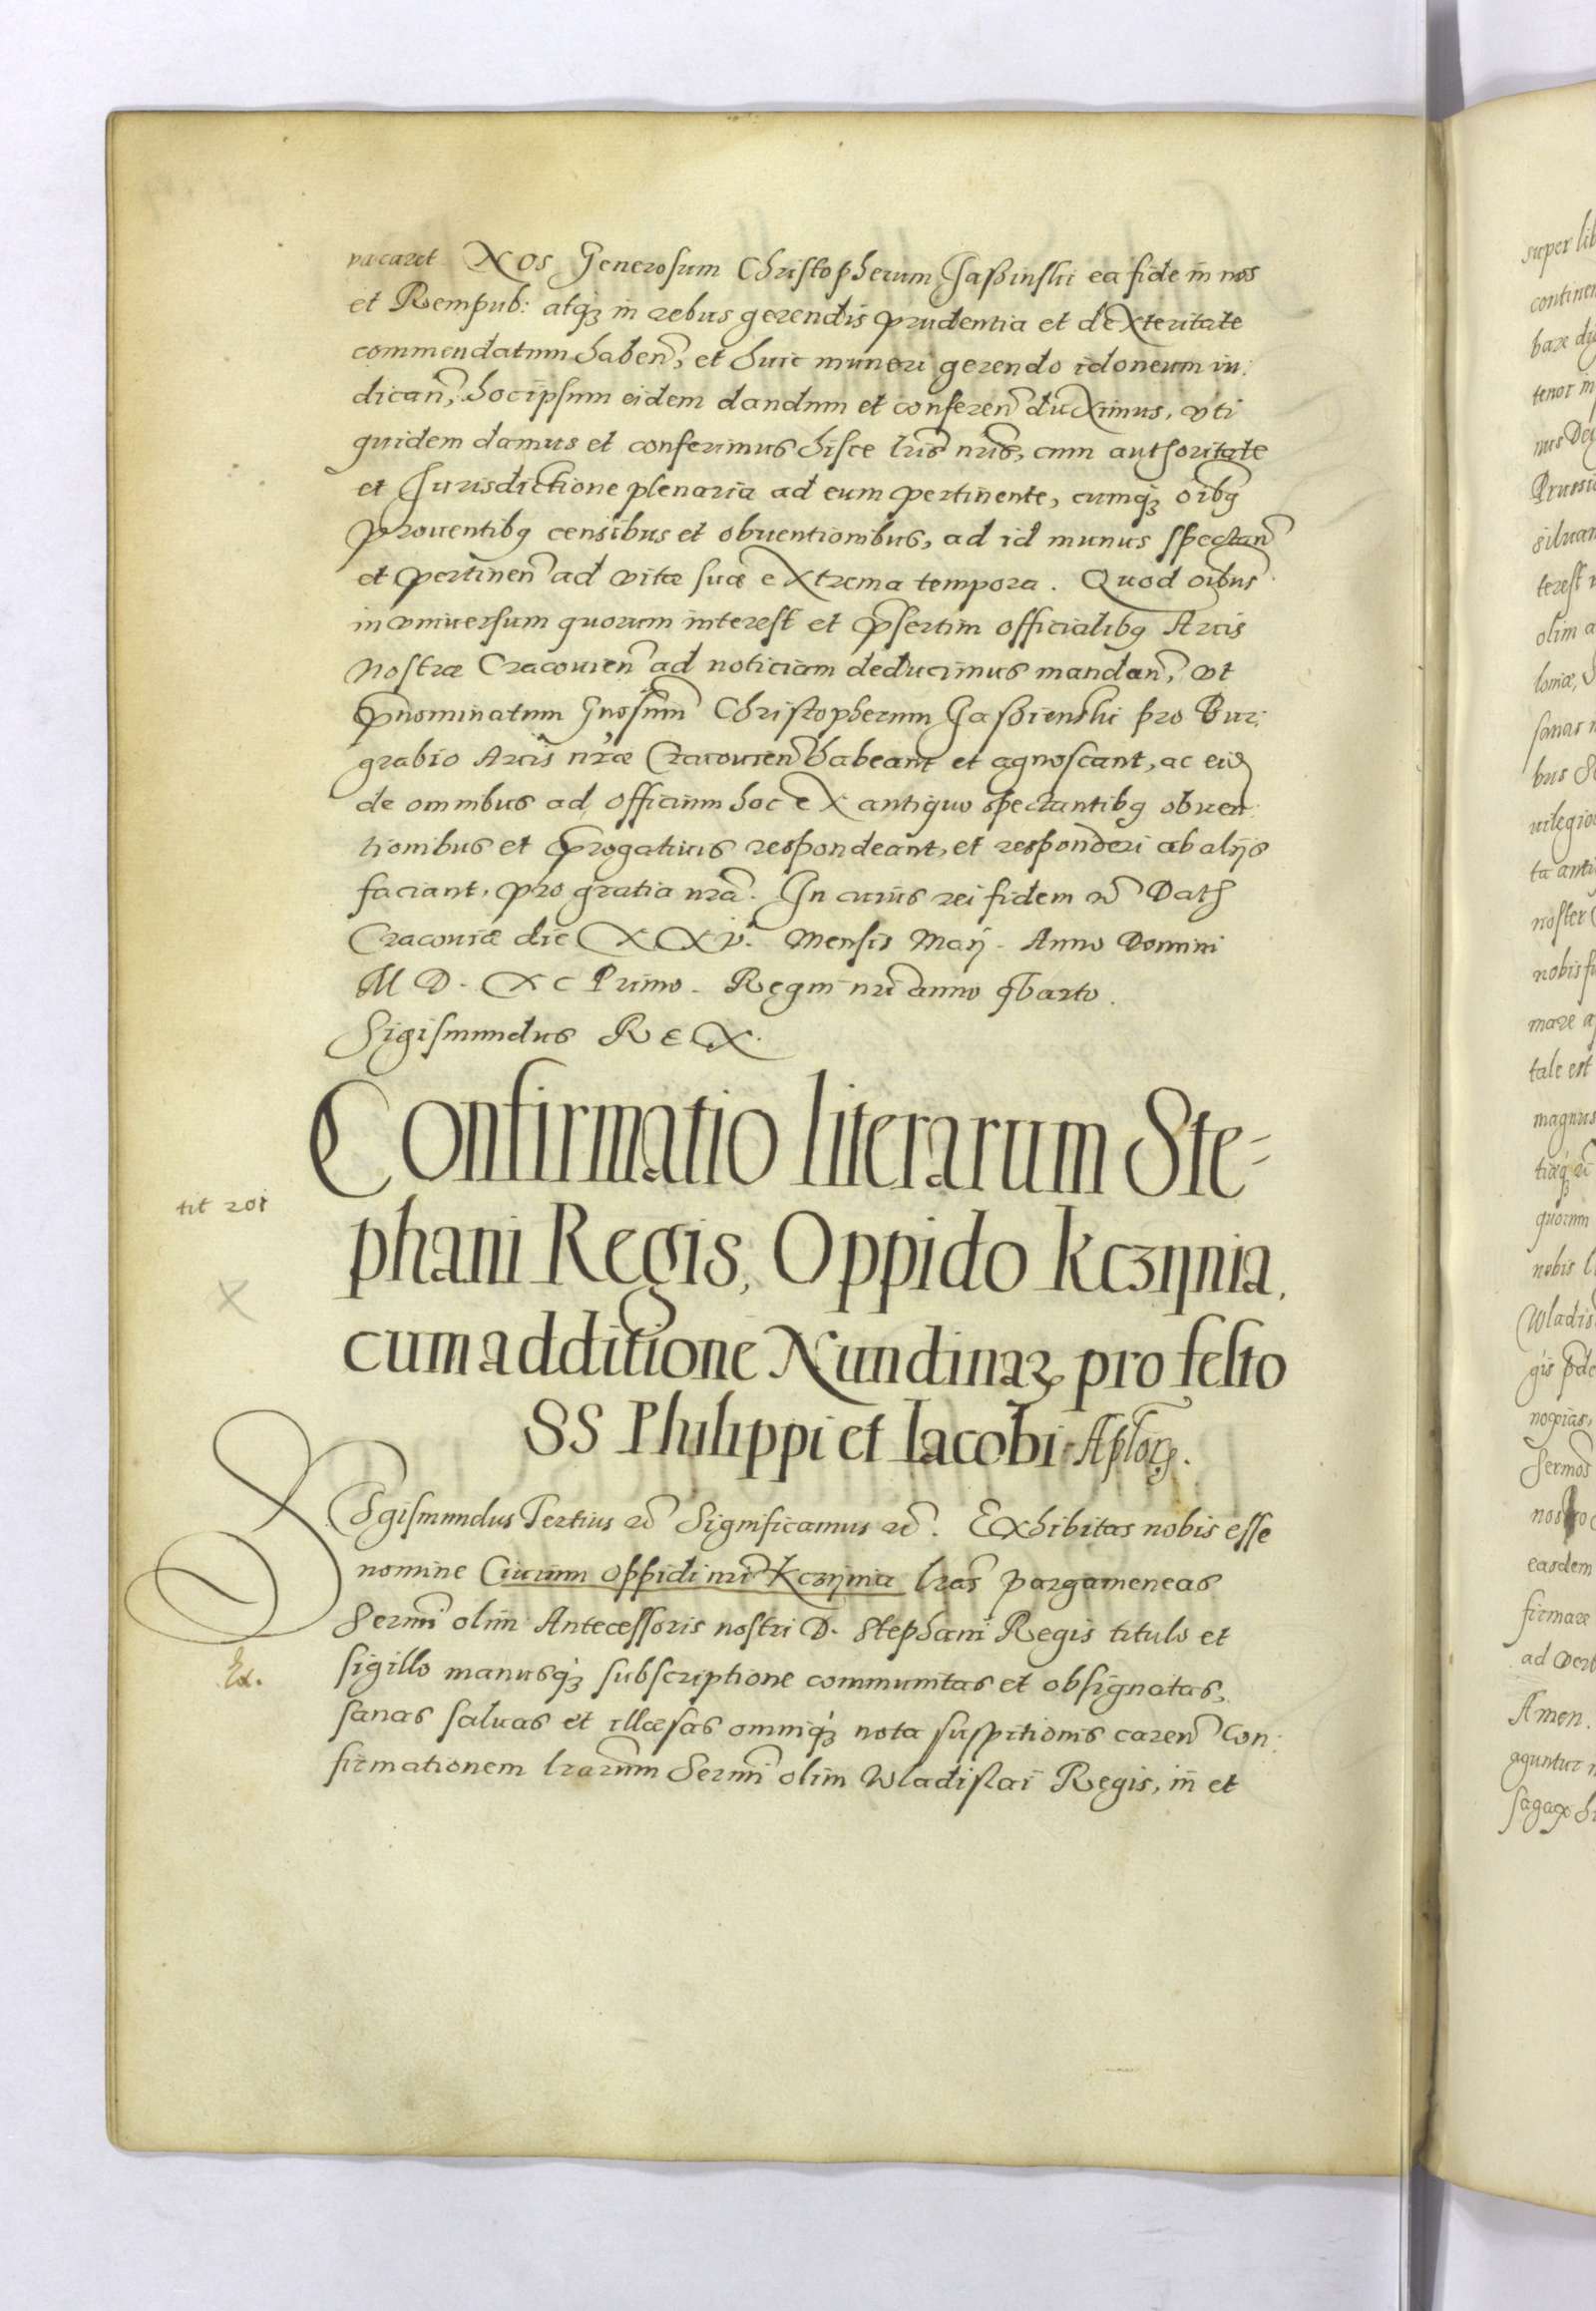 vacaret Nos Generosum Christopherum Jaßinskii ea fide in nos
et Rempub: atq₃ in rebus gerendis prudentia et dexteritate
commendatum haben̄, et huic muneri gerendo idoneum iu:
dican̄, hoc ipsum eidem dandum et conferen̄ duximus, vti
quidem damus et conferimus hisce lr̃is nr̃is, cum authoritate
et Jurisdictione plenaria ad eum pertinente, cumq₃ oĩbꝰ
prouentibꝰ censibus et obuentionibus, ad id munus spectan̄
et pertinen̄ ad vitæ suæ extrema tempora. Quod oĩbus
in vniuersum quorum interest et p̃sertim officialibꝰ Arcis
Nostræ Cracouien̄ ad noticiam deducimus mandan̄, vt
p̃nominatum Gnosũm Christopherum Jaßienskii pro Bur:
grabio Arcis nr̃æ Cracouien̄ habeant et agnoscant, ac eid
de omnibus ad officium hoc ex antiquo spectantibꝰ obuen:
tionibus et p̃rogatiuis respondeant, et responderi ab alijs
faciant, pro gratia nr̃a. In cuius rei fidem &c̃ Datꝭ
Cracouiæ die XXV. Mensis Maij. Anno Domini
M D. XC Primo. Regni nr̃i anno qṽarto.
Sigismundus REX.
Confirmatio literarum Ste-
tit 201
phani Regis, Oppido Kczijnia,
X
cum additione Nundinaꝝ pro festo
SS Philippi et Iacobi Apl̃oꝝ.
Sigismundus Tertius &c̃ Significamus &c̃. Exhibitas nobis esse
nomine Ciuium oppidi nr̃i Kczijnia lr̃as pargameneas
Serm̃i olim Antecessoris nostri D. Stephani Regis titulo et
sigillo manusq₃ subscriptione communitas et obsignatas,
sanas saluas et illæsas omniq₃ nota suspitionis caren̄ Con:
firmationem lr̃arum Serm̃i olim Wladislai Regis, in et